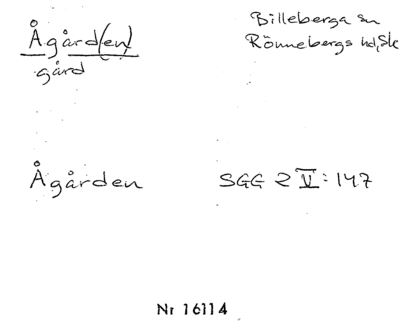 Ågård(en)
gård
Billeberga sn
Rönnebergs hd, Sk
Ågården
SGG 2 V: 147
Nr 16114